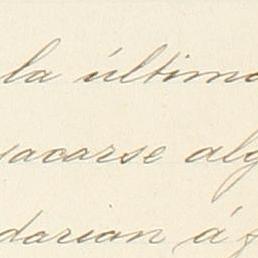 la última
acarse alg
darian á f